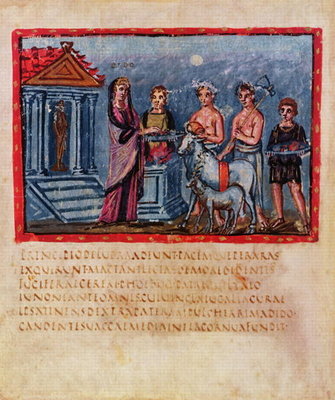 DIDO
PRINCIPIODELUBRAADEUNTPACEMQUEPERARAS
EXQUIRUNTMACTANTLECTASDEMOREBIDENTES
LEGIFERAECERERIPHOEBOQUEPATRIQUELYAEO
IUNONIANTEOMNISCUIUINCLAIUGALIACURAE
IPSATENENSDEXTRAPATERAMPULCHERRIMADIDO
CANDENTESUACCAEMEDIAINTERCORNUAFUNDIT